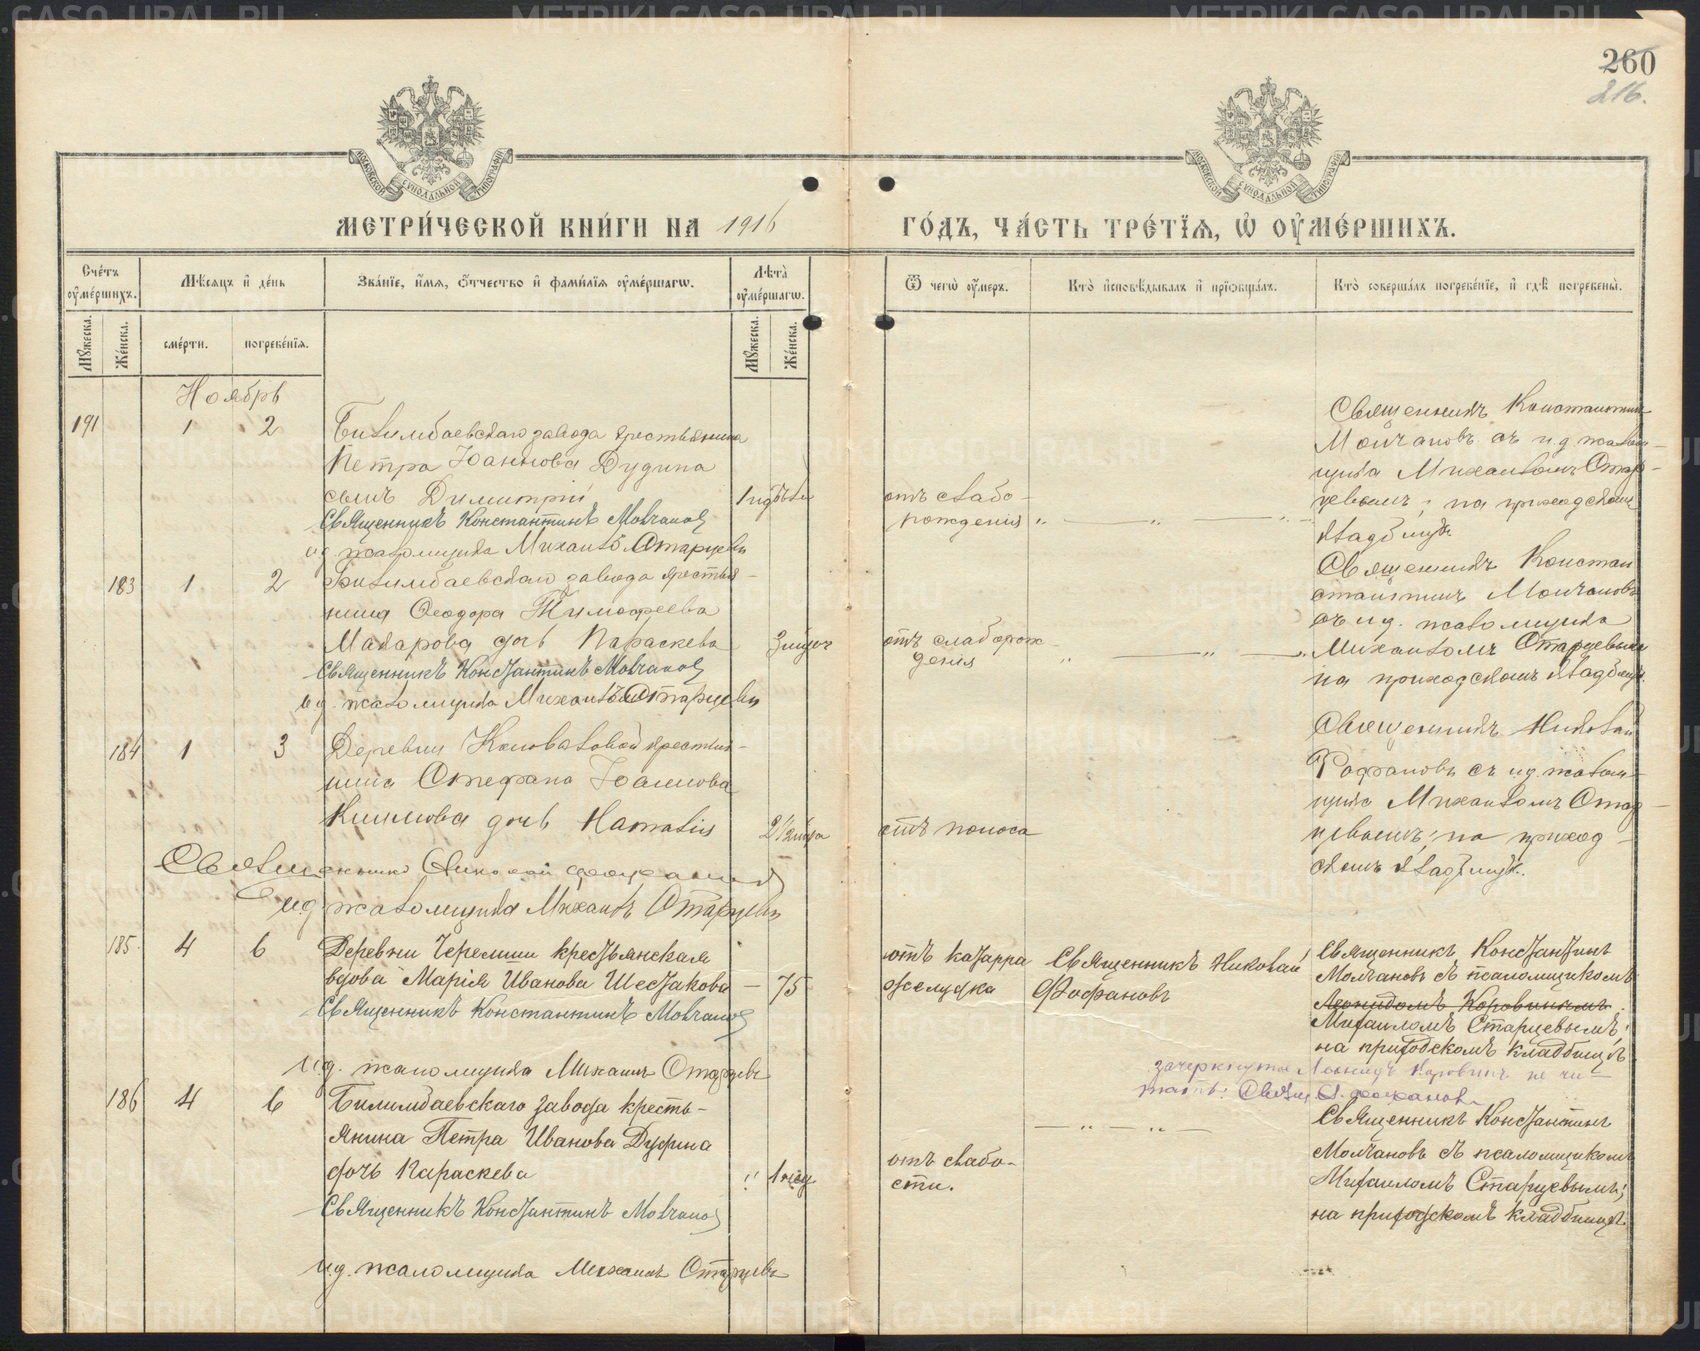 260
216.
МЕТРИ́ЧЕСКОЙ КНИ́ГИ НА 1916
ГО́ДЪ, ЧА́СТЬ ТРЕ́ТЇѦ, Ѽ ОУ҆МЕ́РШИХЪ.
Сче́тъ оу҆ме́ршихъ.
Мѣ́сѧцъ и҆ де́нь
Зва́нїе, и҆́мѧ, ѻ҆́тчество и҆ фами́лїѧ оу҆ме́ршагѡ.
Лѣ̀та оу҆ме́ршагѡ.
Ѿ чегѡ̀ оу҆́меръ.
Кто̀ и҆сповѣ́дывалъ и҆ прїѡбща́лъ.
Кто̀ соверша́лъ погребе́нїе, и҆ гдѣ̀ погребены̀.
Мꙋ́жеска.
Же́нска.
сме́рти.
погребе́нїѧ.
Мꙋ́жеска.
Же́нска.
Ноябрь
191
1
2
Билимбаевскаго завода крестьянина
Петра Іоаннова Дудина
сынъ Димитрій
Священникъ Константинъ Молчановъ
и.д. псаломщика Михаилъ Старцевъ
отъ слабо-
рожденія
Священникъ Константинъ
Молчановъ съ и д псалом-
щика Михаиломъ Стар-
цевымъ; на приходскомъ
кладбищѣ
183
1
2
Билимбаевскаго завода крестья-
нина Ѳеодора Тимофеева
Макарова дочь Параскева
3 мѣсяч
Священникъ Константинъ Молчановъ
и д. псаломщика Михаилъ Старцевъ
отъ слаборож-
денія
Священникъ Констан
стантинъ Молчановъ
съ и д. псаломщика
Михаиломъ Старцевымъ
на приходскомъ кладбищѣ.
184
1
3
Деревни Коноваловой крестья-
нина Стефана Іоаннова
дочь Наталія
2 1/2 мѣсяца
Священникъ Николай Фофановъ
и д псаломщика Михаилъ Старцевъ
отъ поноса
Священникъ Николай
Фофановъ съ и д. псалом-
щика Михаиломъ Стар-
цевымъ; на приход-
скомъ кладбищѣ.
185.
4
6
Деревни Черемши крестьянская
вдова Марія Иванова Шестакова
— 75
Священникъ Константинъ Молчановъ
и.д. псаломщика Михаилъ Старцевъ
отъ катарра
желудка
Священникъ Николай
Фофановъ
Священникъ Константинъ
Молчановъ съ псаломщикомъ
Леонидомъ Коровинымъ
Михаиломъ Старцевымъ;
на приходскомъ кладбищѣ
зачеркнутое Леонидъ Коровинъ не чи-
тать: Свящ. Н. Фофановъ
186
4
6
Билимбаевскаго завода кресть-
янина Петра Иванова Дудина
дочь Параскева
" 1 мѣц
Священникъ Константинъ Молчановъ
и.д. псаломщика Михаилъ Старцевъ
отъ слабо-
сти.
Священникъ Константинъ
Молчановъ съ псаломщикомъ
Михаиломъ Старцевымъ;
на приходскомъ кладбищѣ.
METRIKI.GASO-URAL.RU